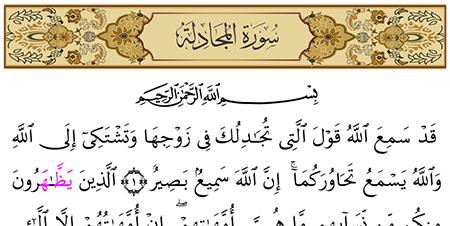 سُورَةُ المُجَادلة
بِسْمِ ٱللَّهِ ٱلرَّحْمَٰنِ ٱلرَّحِيمِ
قَدْ سَمِعَ ٱللَّهُ قَوْلَ ٱلَّتِى تُجَٰدِلُكَ فِى زَوْجِهَا وَتَشْتَكِىٓ إِلَى ٱللَّهِ
وَٱللَّهُ يَسْمَعُ تَحَاوُرَكُمَآۚ إِنَّ ٱللَّهَ سَمِيعُۢ بَصِيرٌ ١ ٱلَّذِينَ يَظَّٰهَرُونَ
مِنكُم مِّن نِّسَآئِهِم مَّا هُنَّ أُمَّهَٰتِهِمْۖ إِنْ أُمَّهَٰتُهُمْ إِلَّا